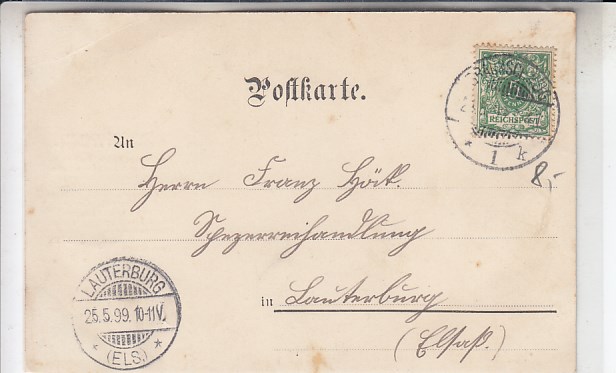 Postkarte.
REICHSPOST
1 k
An
Herrn Franz Höck.
8,-
Spezereihandlung
in Lauterburg
(Elsaß.)
LAUTERBURG
25.5.99. 10-11V.
* (ELS.) *